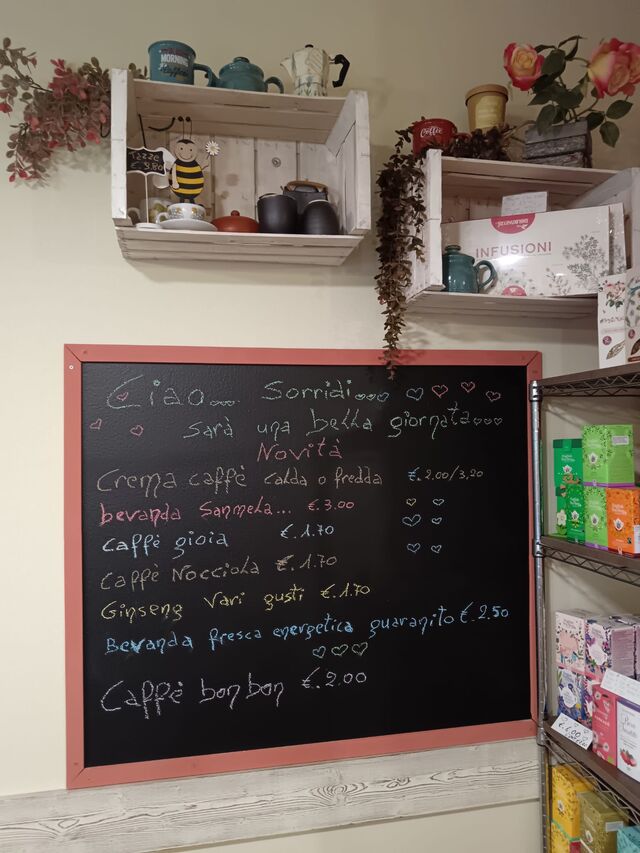 MORNING
Coffee
Tazze
€ 3,80
Coffee
INFUSIONI
Ciao... Sorridi...
sarà una bella giornata...
Novità
Crema caffè calda o fredda €.2.00/3,20
bevanda Sanmela... €.3.00
caffè gioia €.1.70
Caffè Nocciola €.1.70
Ginseng Vari gusti €.1.70
Bevanda fresca energetica guaranito €.2.50
Caffè bonbon €.2.00